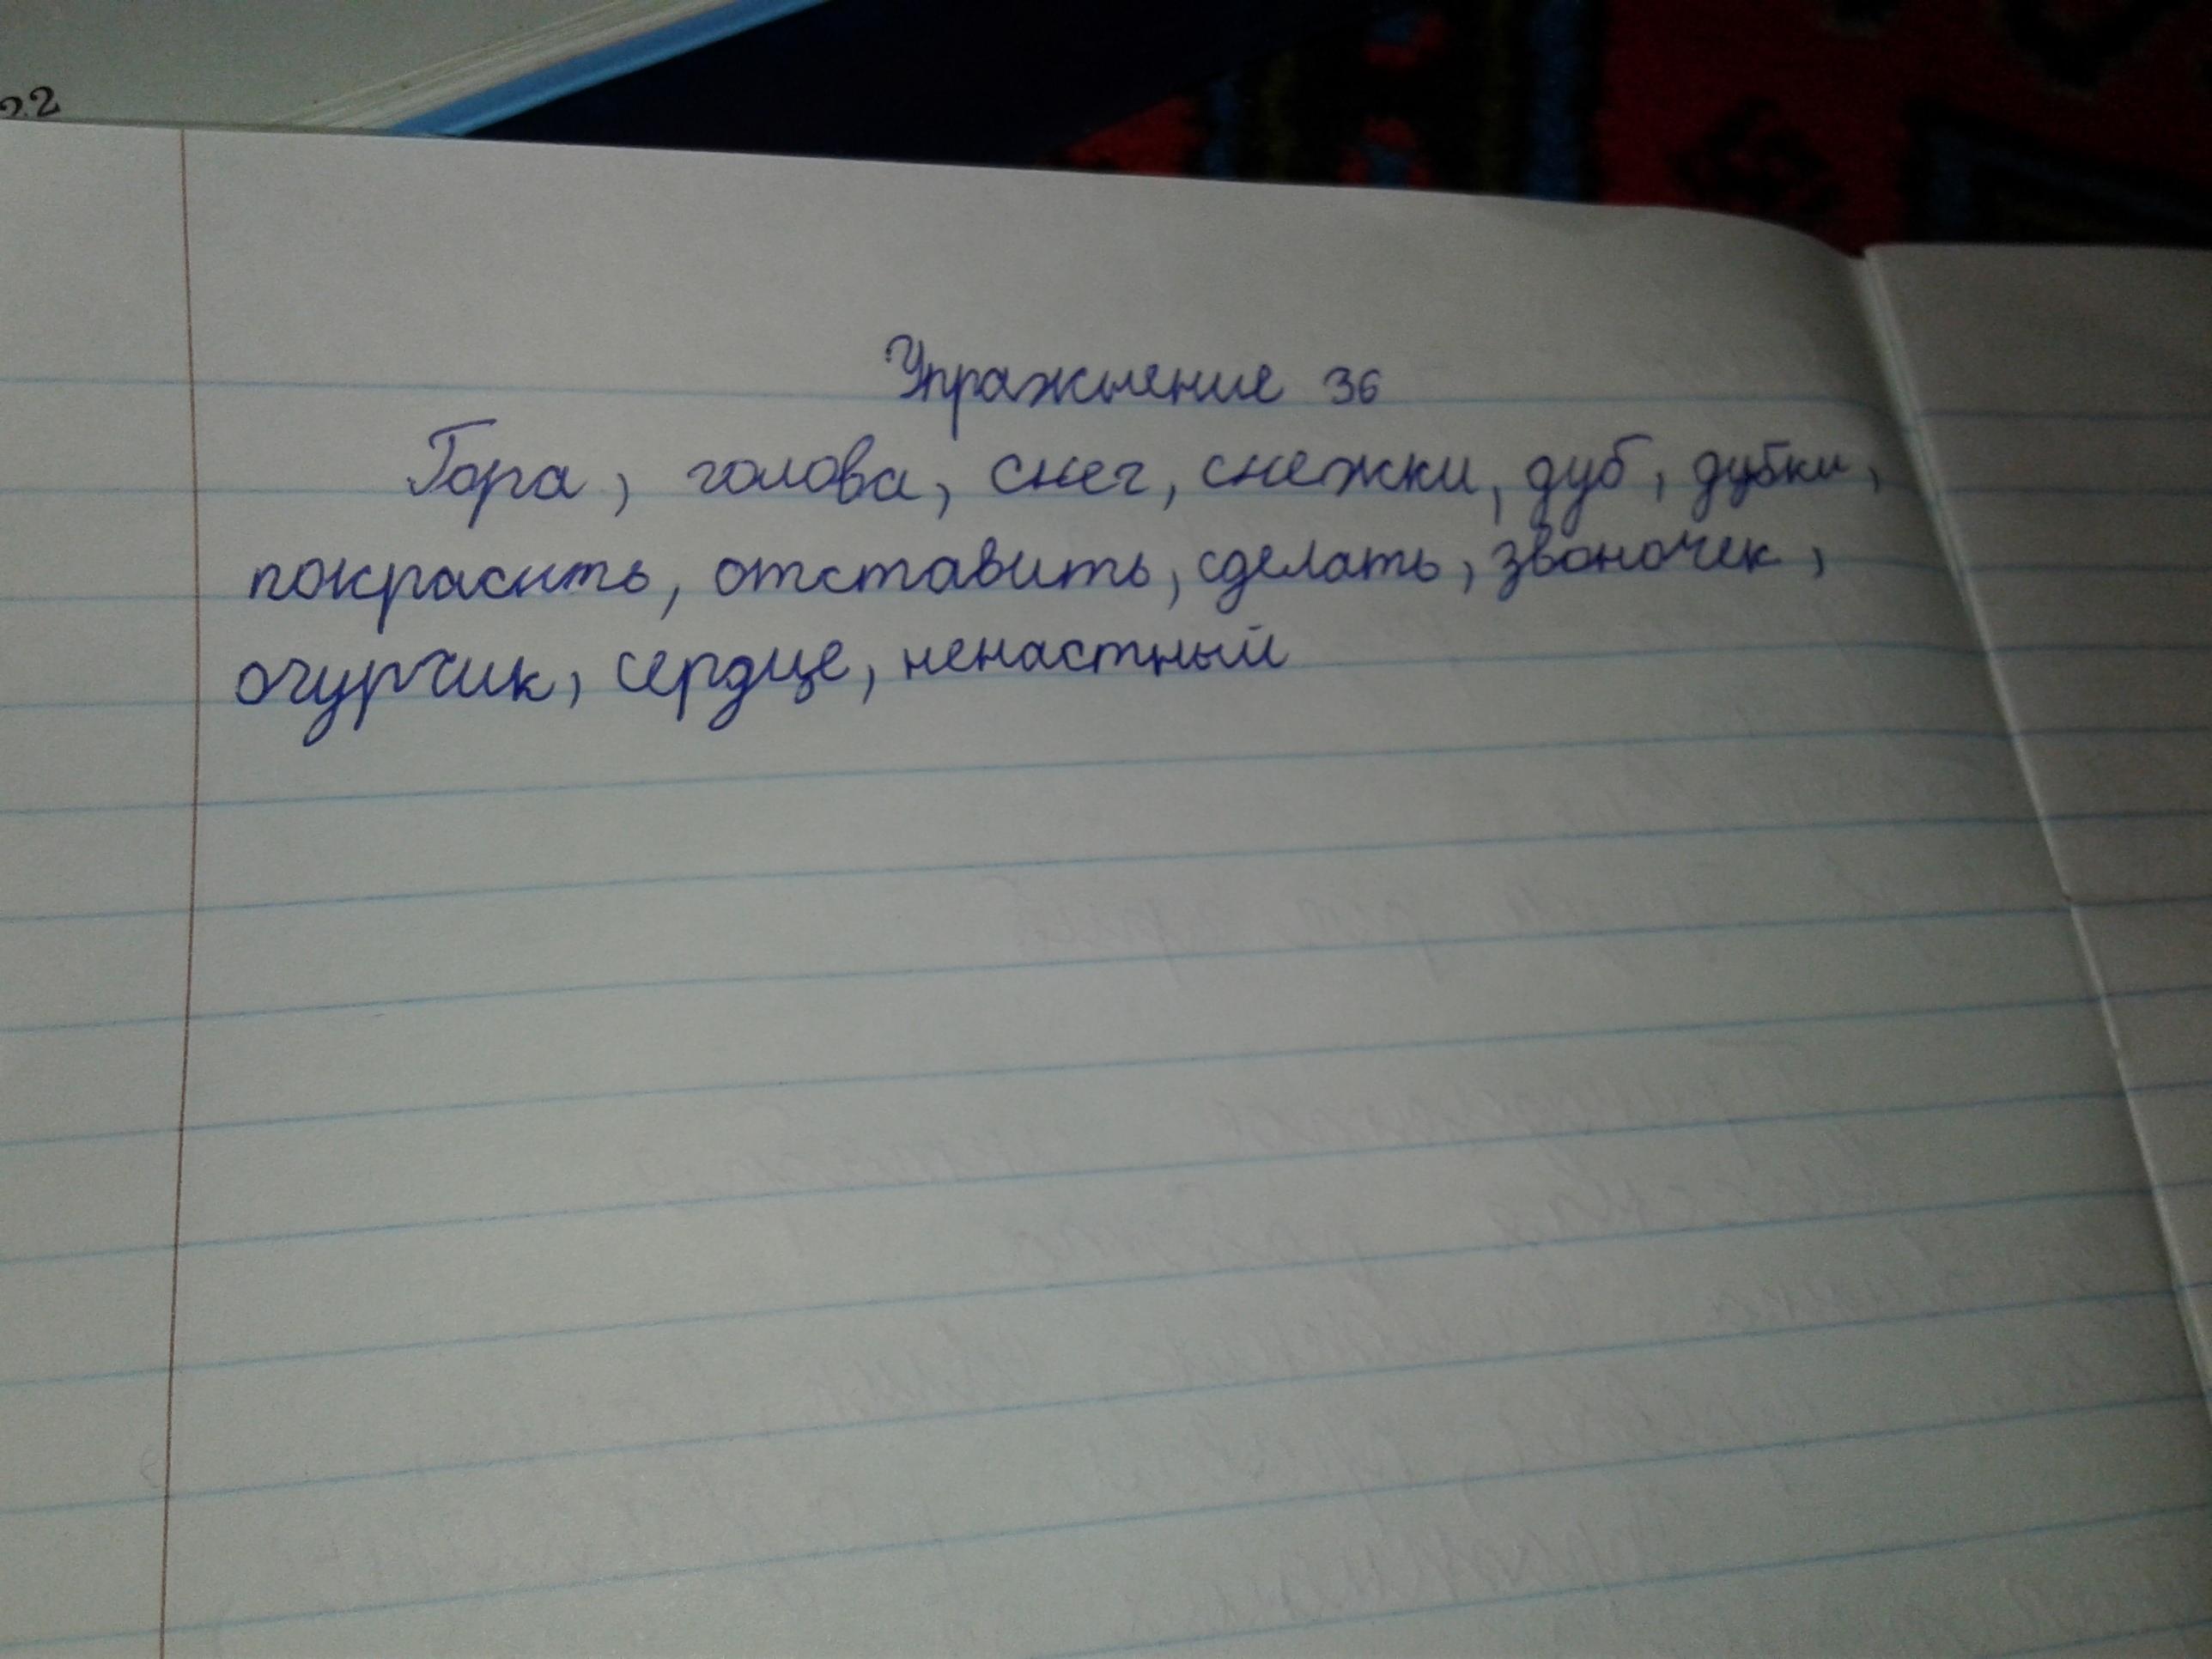 22
Упражнение 36
Гора, голова, снег, снежки, дуб, дубки,
покрасить, отставить, сделать, звоночек,
огурчик, сердце, ненастный